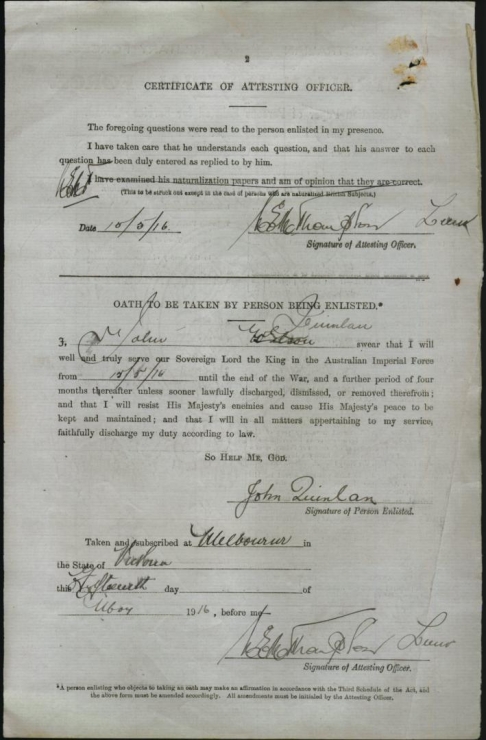 2
CERTIFICATE OF ATTESTING OFFICER.
The foregoing questions were read to the person enlisted in my presence.
I have taken care that he understands each question, and that his answer to each
question has been duly entered as replied to by him.
I have examined his naturalization papers and am of opinion that they are correct.
(This to be struck out except in the case of persons who are naturalized British Subjects.)
Date
Signature of Attesting Officer.
OATH TO BE TAKEN BY PERSON BEING ENLISTED.*
Quinlan
3, John swear that I will
well and truly serve our Sovereign Lord the King in the Australian Imperial Force
from until the end of the War, and a further period of four
months thereafter unless sooner lawfully discharged, dismissed, or removed therefrom;
and that I will resist His Majesty's enemies and cause His Majesty's peace to be
kept and maintained; and that I will in all matters appertaining to my service,
faithfully discharge my duty according to law.
SO HELP ME, GOD.
John Quinlan
Signature of Person Enlisted.
Taken and subscribed at Melbourne in
the State of Victoria
this day of
May 1916, before me
Signature of Attesting Officer.
*A person enlisting who objects to taking an oath may make an affirmation in accordance with the Third Schedule of the Act, and
the above form must be amended accordingly. All amendments must be initialed by the Attesting Officer.